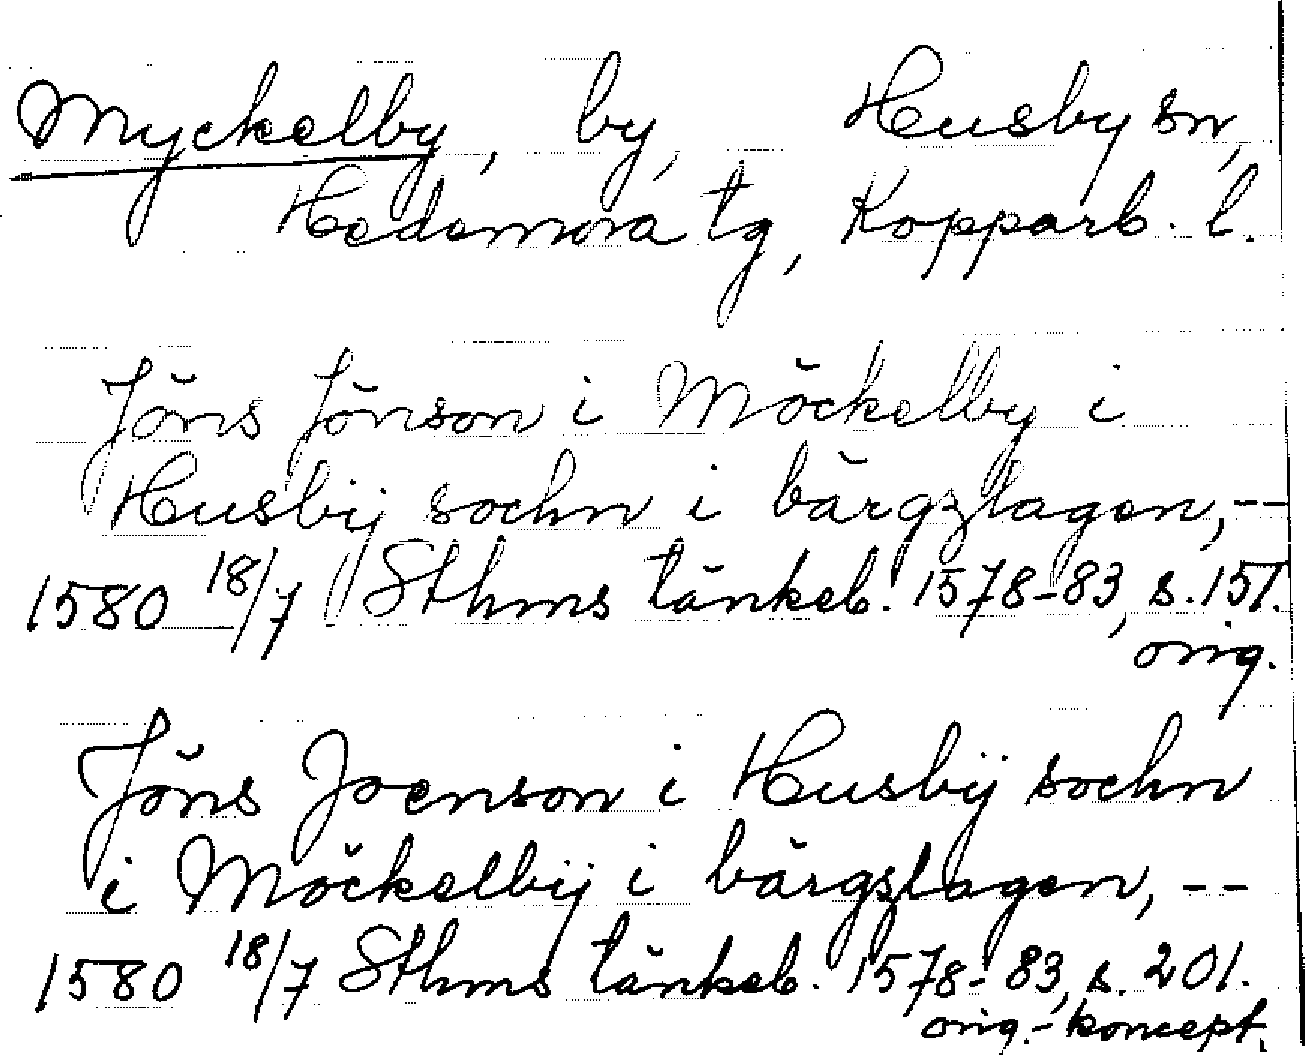 Myckelby, by, Husby sn,
Hedemora tg, Kopparb. l.
Jöns Jönson i Möckelby i
Husbÿ sochn i bärgzlagen, --
1580 18/7 Sthms tänkeb. 1578-83, s. 151.
orig.
Jöns Joenson i Husbÿ sochn
i Möckelbÿ i bärgzlagen, --
1580 18/7 Sthms tänkeb. 1578-83, s. 201.
orig.-koncept.